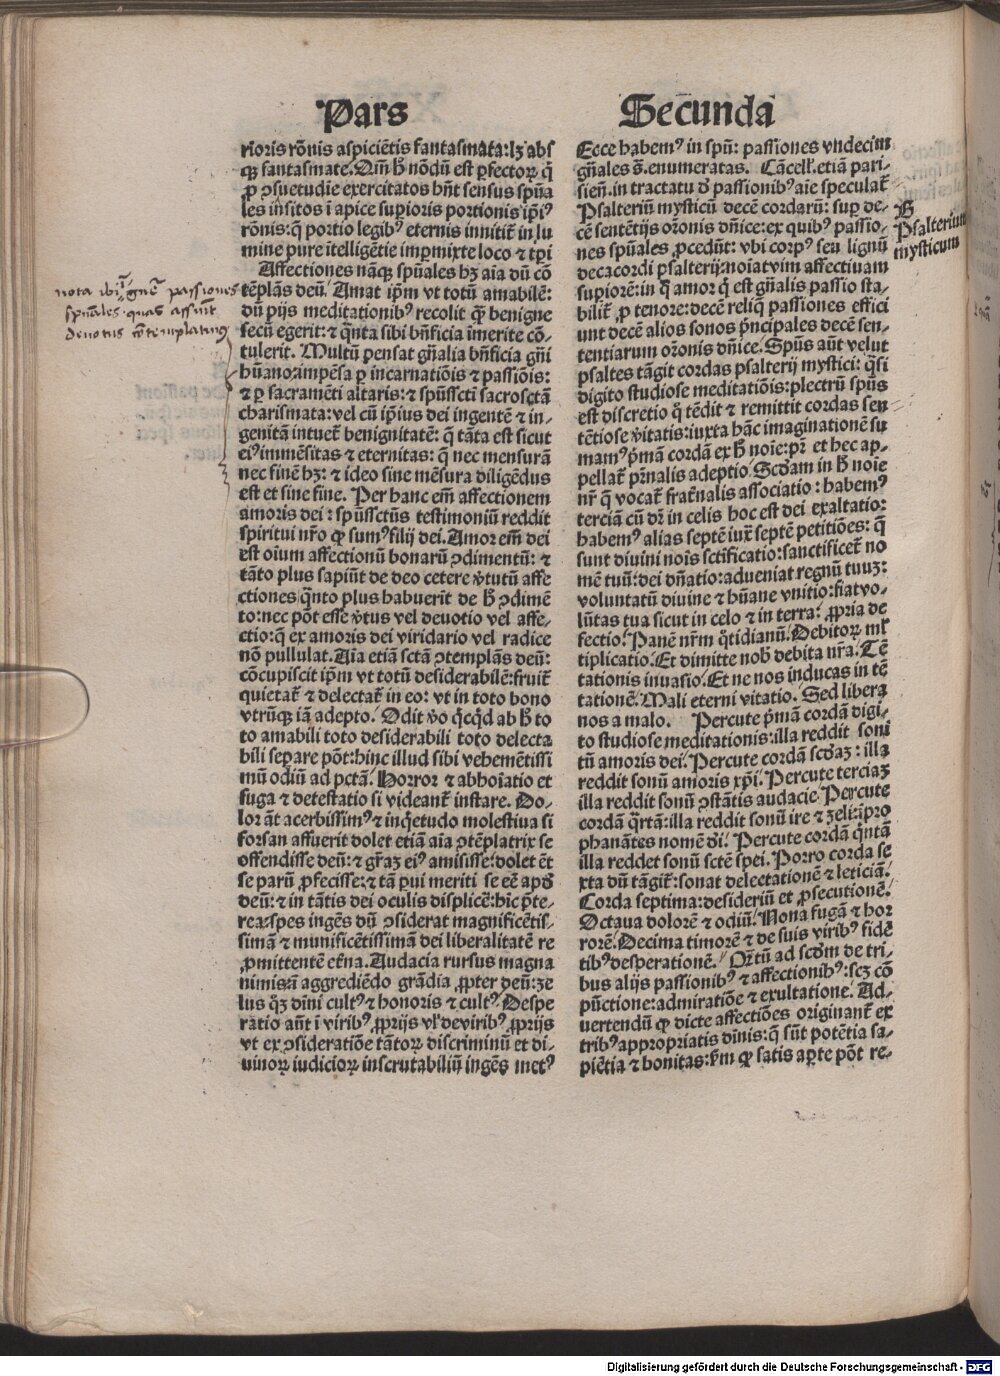 Pars
rioris rōnis aspiciētis fantasmata: lꝫ abs
qꝫ fantasmate. Qm̄ ħ nōdū est ꝑfectoꝝ q̄
ꝓ ꝯsuetudīe exercitatos hn̄t sensus spūa
les insitos ī apice suꝑioris portionis ip̄iꝰ
rōnis: q̄ portio legibꝰ eternis innitit᷑ in lu
mine pure ītelligētie imꝑmixte loco ⁊ tꝑi
Affectiones nāqꝫ spūales hꝫ aīa dū cō
tēplās deū. Amat ip̄m vt totū amabilē:
dū pijs meditationibꝰ recolit qꝫ benigne
secū egerit: ⁊ q̄nta sibi bn̄ficia īmerite cō
tulerit. Multū pensat gn̄alia bn̄ficia gn̄i
hūano impēsa ꝑ incarnatiōis ⁊ passiōis:
⁊ ꝑ sacramēti altaris: ⁊ spūsscti sacrosctā
charismata: vel cū ip̄ius dei ingentē ⁊ in
genitā intuet᷑ benignitatē: q̄ tāta est sicut
eiꝰ immēsitas ⁊ eternitas: q̄ nec mensurā
nec finē hꝫ: ⁊ ideo sine mēsura diligēdus
est et sine fine. Per hanc em̄ affectionem
amoris dei: spūssctūs testimoniū reddit
spiritui nr̄o ꝙ sumꝰ filij dei. Amor em̄ dei
est oīum affectionū bonarū ꝯdimentū: ⁊
tāto plus sapiūt de deo cetere v̄tutū affe
ctiones q̄nto plus habuerīt de ħ ꝯdimē
to: nec pōt esse v̄tus vel deuotio vel affe-
ctio: q̄ ex amoris dei viridario vel radice
nō pullulat. Aīa etiā sctā ꝯtemplās deū:
cōcupiscit ip̄m vt totū desiderabilē: fruit᷑
quietat᷑ ⁊ delectat᷑ in eo: vt in toto bono
vtrūqꝫ iā adepto. Odit v̄o q̄cqd ab ħ to
to amabili toto desiderabili toto delecta
bili seꝑare pōt: hinc illud sibi vehemētissi
mū odiū ad pctā. Horror ⁊ abhoīatio et
fuga ⁊ detestatio si videant᷑ instare. Do-
lor āt acerbissimꝰ ⁊ inq̄etudo molestiua si
forsan affuerit dolet etiā aīa ꝯtēplatrix se
offendisse deū: ⁊ gr̄aꝫ eiꝰ amisisse: dolet ēt
se parū ꝓfecisse: ⁊ tā pui meriti se eē apđ
deū: ⁊ in tātis dei oculis displicē: hīc p̄te-
rea: spes ingēs dū ꝯsiderat magnificētis-
simā ⁊ munificētissimā dei liberalitatē re
ꝓmittentē et̄na. Audacia rursus magna
nimisā aggrediēdo grādia ꝓpter deū: ze
lus q̄ꝫ dīni cultꝰ ⁊ honoris ⁊ cultꝰ. Despe
ratio aūt ī viribꝰ ꝓprijs vl' de viribꝰ ꝓprijs
vt ex ꝯsideratiōe tātoꝝ discriminū et di-
uinoꝝ iudicioꝝ inscrutabiliū ingēs metꝰ
nota ibi gn̄es passiones
spūales quas assumt
deuotus cōtemplatiuꝰ
Secunda
Ecce habemꝰ in spū: passiones vndecim
gn̄ales s̄. enumeratas. Cācell'. etiā pari-
sien̄. in tractatu đ passionibꝰ aīe speculat᷑
Psalteriū mysticū decē cordarū: suꝑ de-
cē sentētijs or̄onis dn̄ice: ex quibꝰ passio-
nes spūales ꝓcedūt: vbi corpꝰ seu lignū
decacordi psalterij: noīat vim affectiuam
suꝑiorē: in q̄ amor q̄ est gn̄alis passio sta-
bilit᷑ ꝓ tenore: decē reliq̄ passiones effici
unt decē alios sonos p̄ncipales decē sen-
tentiarum or̄onis dn̄ice. Spūs aūt velut
psaltes tāgit cordas psalterij mystici: q̄si
digito studiose meditatiōis: plectrū spūs
est discretio q̄ tēdit ⁊ remittit cordas sen
tētiose v̄itatis: iuxta hāc imaginationē su
mamꝰ p̄mā cordā ex ħ noīe: pr̄ et hec ap-
pellat᷑ pr̄nalis adeptio. Scđam in ħ noīe
nr̄ q̄ vocat᷑ frat̄nalis associatio: habemꝰ
terciā cū dr̄ in celis hoc est dei exaltatio:
habemꝰ alias septē iux̄ septē petitiōes: q̄
sunt diuini noīs sctificatio: sanctificet᷑ no
mē tuū: dei dn̄atio: adueniat regnū tuuꝫ:
voluntatū diuine ⁊ hūane vnitio: fiat vo-
lūtas tua sicut in celo ⁊ in terra: ꝓpria de
fectio. Panē nr̄m q̄tidianū. Debitoꝝ ml'
tiplicatio. Et dimitte nob̄ debita nr̄a. Tē
tationis inuasio. Et ne nos inducas in tē
tationē. Mali eterni vitatio. Sed libera
nos a malo. Percute p̄mā cordā digi-
to studiose meditationis: illa reddit sonū
tū amoris dei. Percute cordā scđaꝫ: illa
reddit sonū amoris xp̄i. Percute terciaꝫ
illa reddit sonū ꝯstātis audacie. Percute
cordā q̄rtā: illa reddit sonū ire ⁊ ꝫeli: īpro
phanātes nomē dei. Percute cordā q̄ntā
illa reddet sonū sctē spei. Porro corda se
xta dū tāgit᷑: sonat delectationē ⁊ leticiā.
Corda septima: desideriū et ꝓsecutionē.
Octaua dolorē ⁊ odiū. Nona fugā ⁊ hor
rorē. Decima timorē ⁊ de suis viribꝰ fidē
tibꝰ desperationē. Qr̄tū ad scđm de tri-
bus alijs passionibꝰ ⁊ affectionibꝰ: scꝫ cō
pūctione: admiratiōe ⁊ exultatione. Ad-
uertendū ꝙ dicte affectiōes originant᷑ ex
tribꝰ appropriatis diuīs: q̄ sūt potētia sa-
piētia ⁊ bonitas: vm̄ qꝫ satis aꝑte pōt re-
B
Psalterium
mysticum
Digitalisierung gefördert durch die Deutsche Forschungsgemeinschaft - DFG